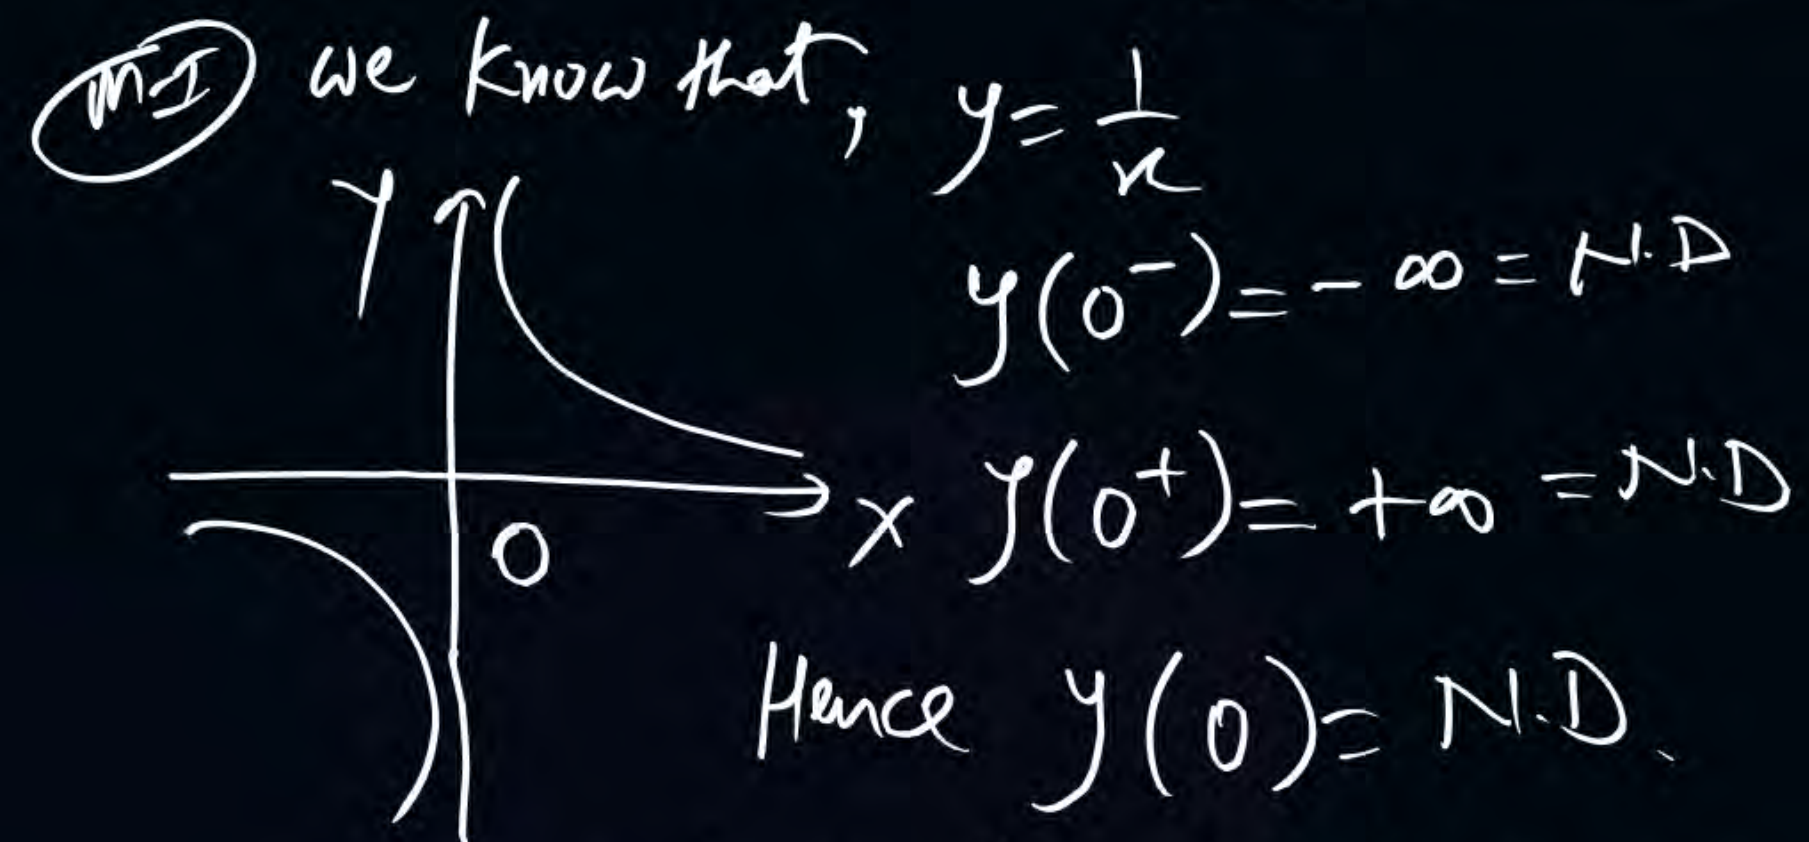 M-I we know that, y = 1/x
Y
y(0⁻) = - ∞ = N.D
X y(0⁺) = +∞ = N.D
O
Hence y(0) = N.D.